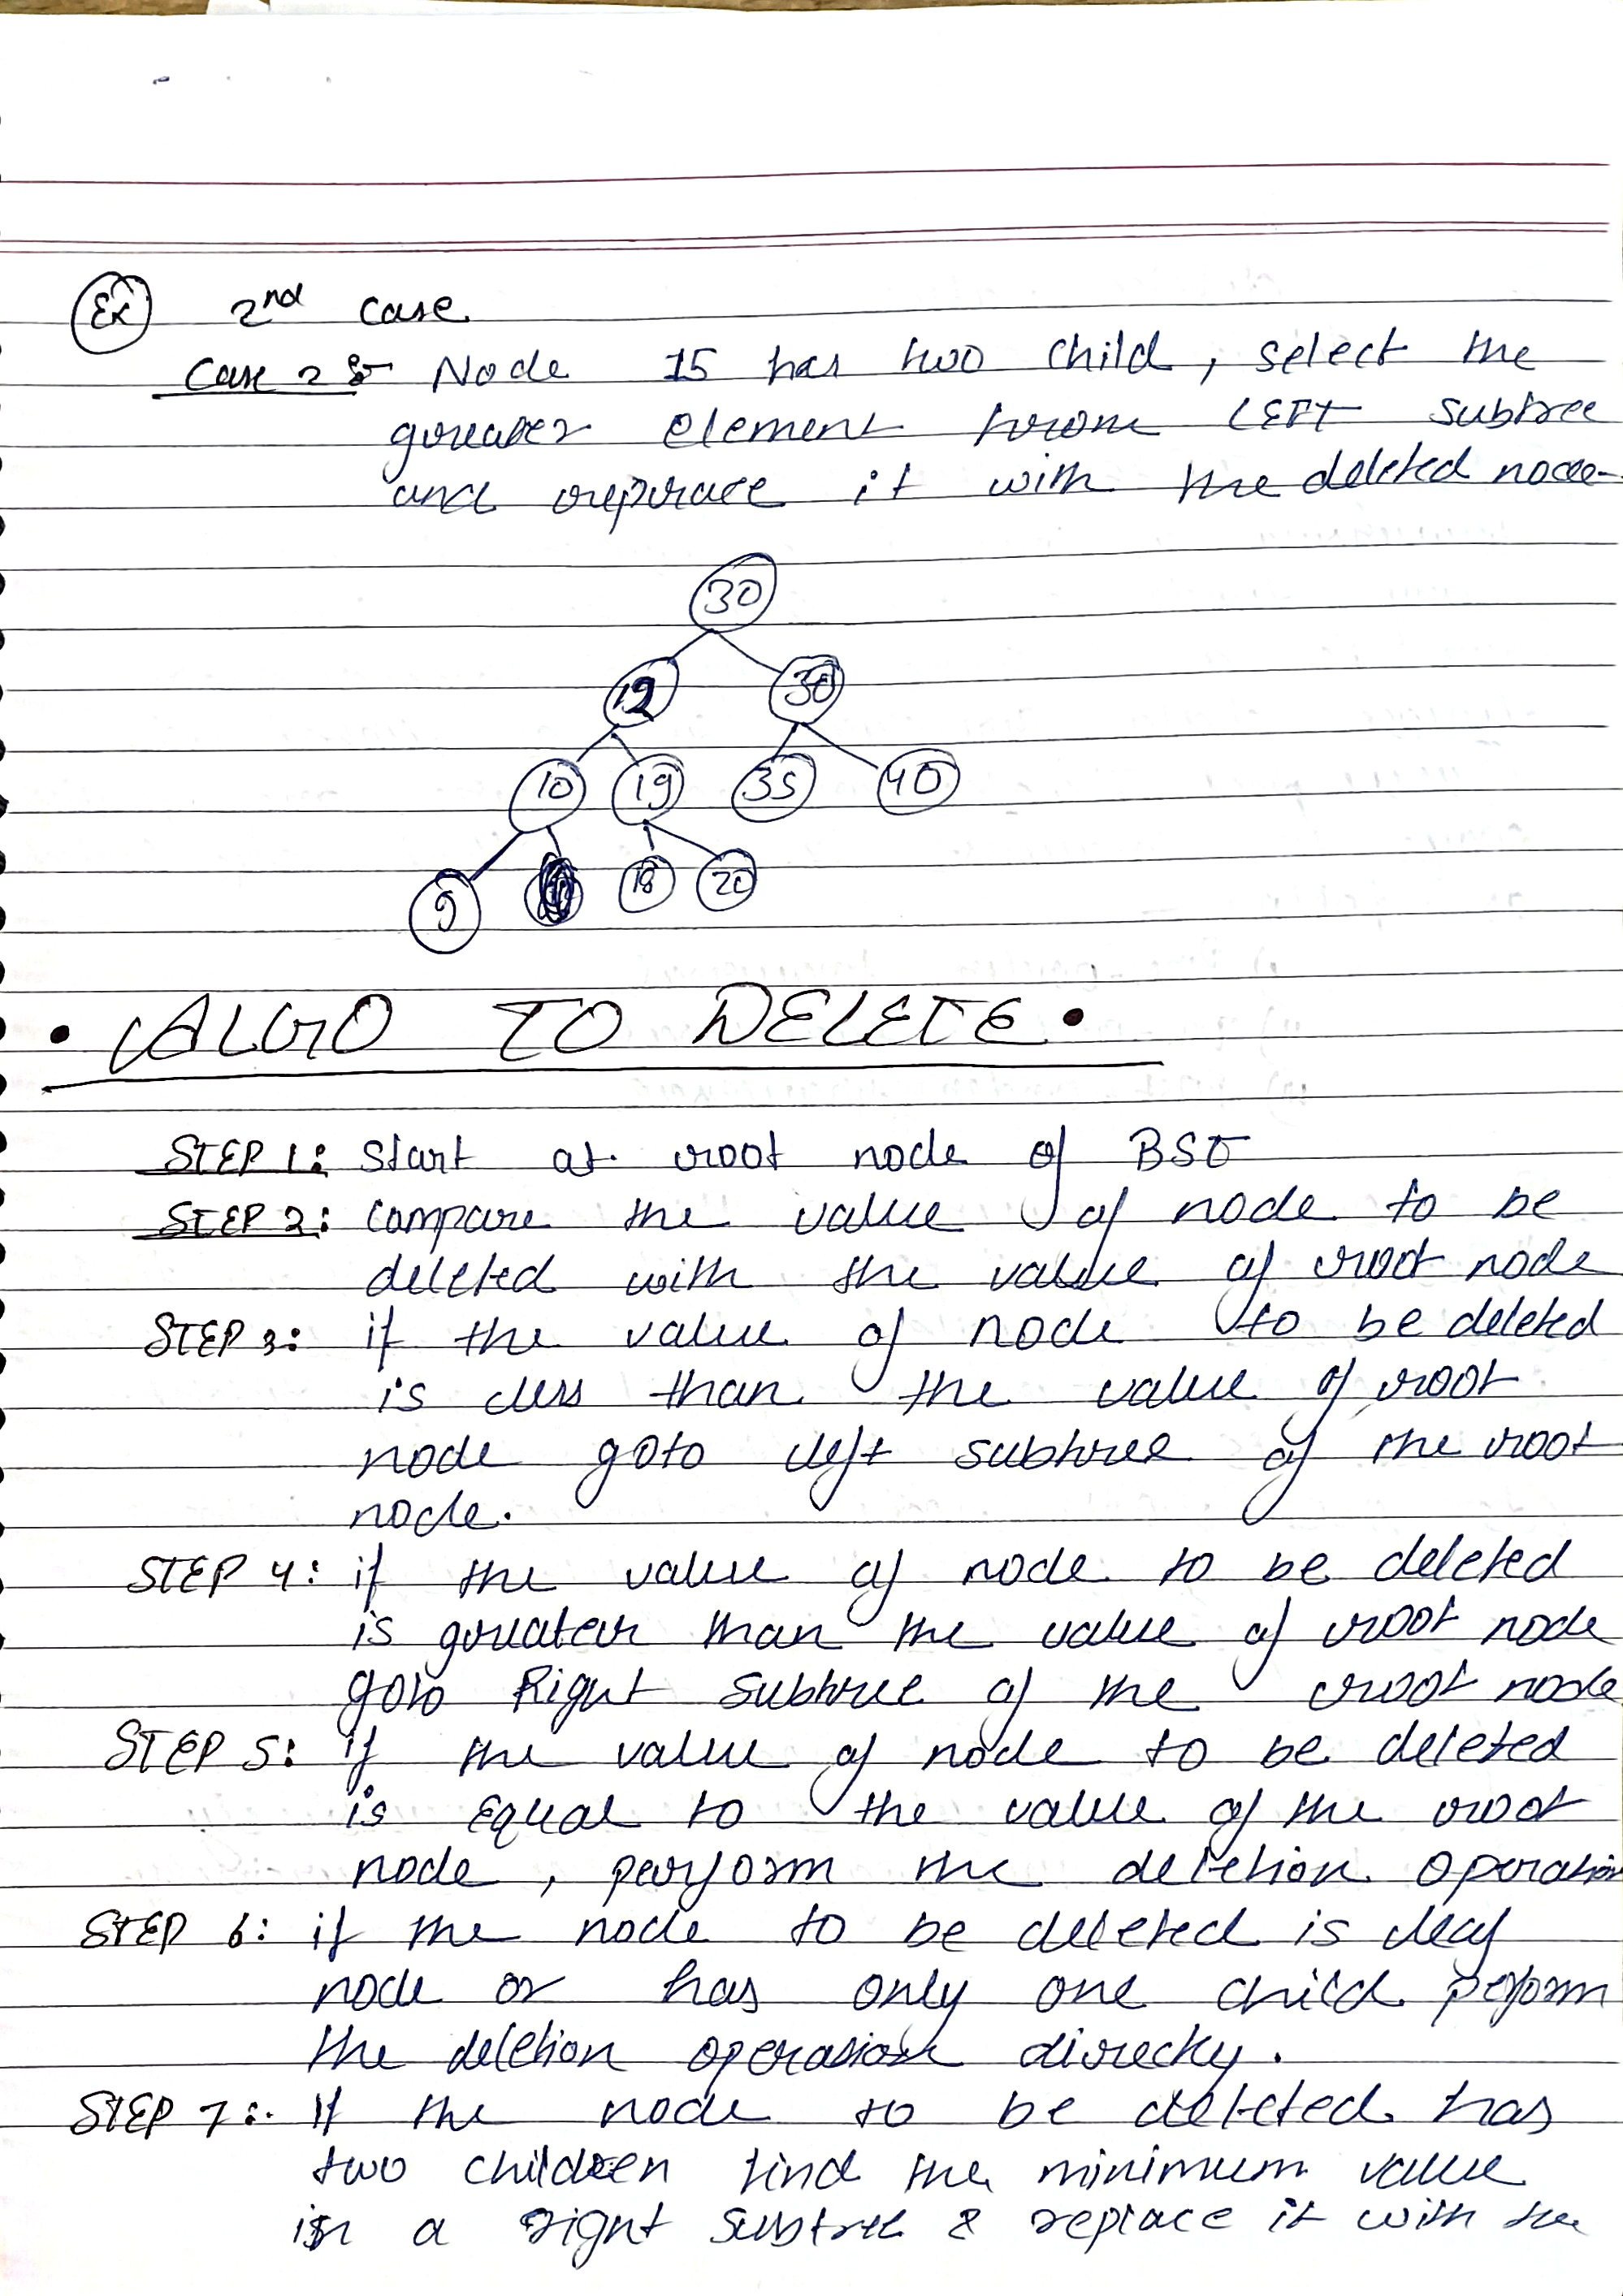 Ex 2nd case
Case 2 :- Node 15 has two child, select the
greater element from LEFT subtree
and replace it with the deleted node-
30
12 30
10 19 35 40
9 18 20
• ALGO TO DELETE •
STEP 1: Start at root node of BST
STEP 2: Compare the value of node to be
deleted with the value of root node
STEP 3: if the value of node to be deleted
is less than the value of root
node goto left subtree of the root
node.
STEP 4: if the value of node to be deleted
is greater than the value of root node
goto Right subtree of the root node
STEP 5: if the value of node to be deleted
is equal to the value of the root
node, perform the deletion operation
STEP 6: if the node to be deleted is leaf
node or has only one child peform
the deletion operation directly.
STEP 7: If the node to be deleted has
two children find the minimum value
in a right subtree & replace it with the